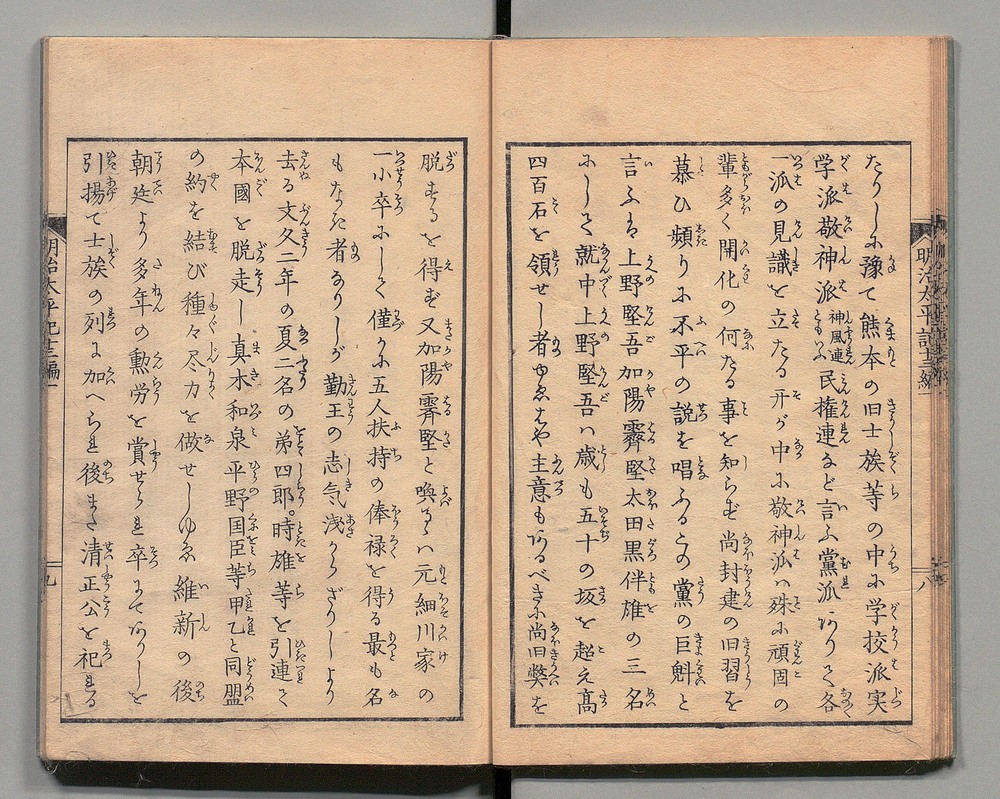 たりしに豫て熊本の旧士族等の中に学校派実
学派敬神派神風連ともいふ民権連など言ふ黨派ありて各
一派の見識を立たる开が中に敬神派ハ殊に頑固の
輩多く開化の何たる事を知らず尚封建の旧習を
慕ひ頻りに不平の説を唱ふるこの黨の巨魁と
言ふは上野堅吾加陽霽堅太田黒伴雄の三名
にして就中上野堅吾ハ歳も五十の坂を越え高
四百石を領せし者ゆゑはや主意もあるべきに尚旧弊を
脱するを得ず又加陽霽堅と喚るハ元細川家の
一小卒にして僅かに五人扶持の俸禄を得る最も名
もなき者ありしが勤王の志気浅からざりしより
去る文久二年の夏二名の弟四郎。時雄等を引連て
本國を脱走し真木和泉平野国臣等甲乙と同盟
の約を結び種々尽力を做せしゆゑ維新の後
朝廷より多年の勲労を賞せられ卒にてありしを
引揚て士族の列に加へられ後また清正公を祀れる
明治太平記十三編一
八
明治太平記十三編一
九